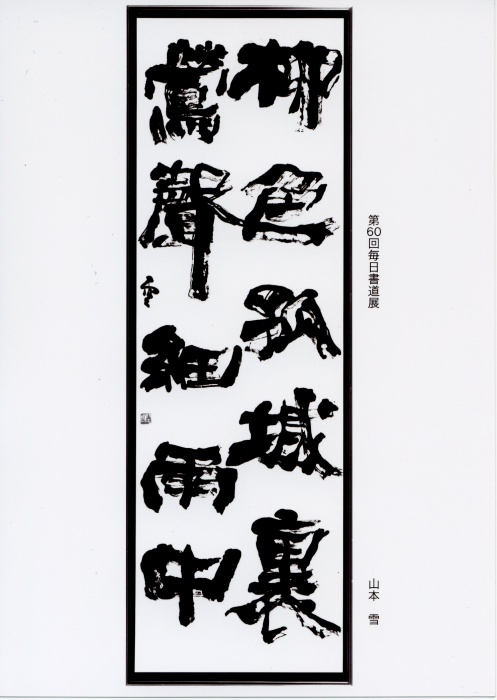 柳色孤城裏
鶯聲細雨中
雪
第60回毎日書道展
山本 雪